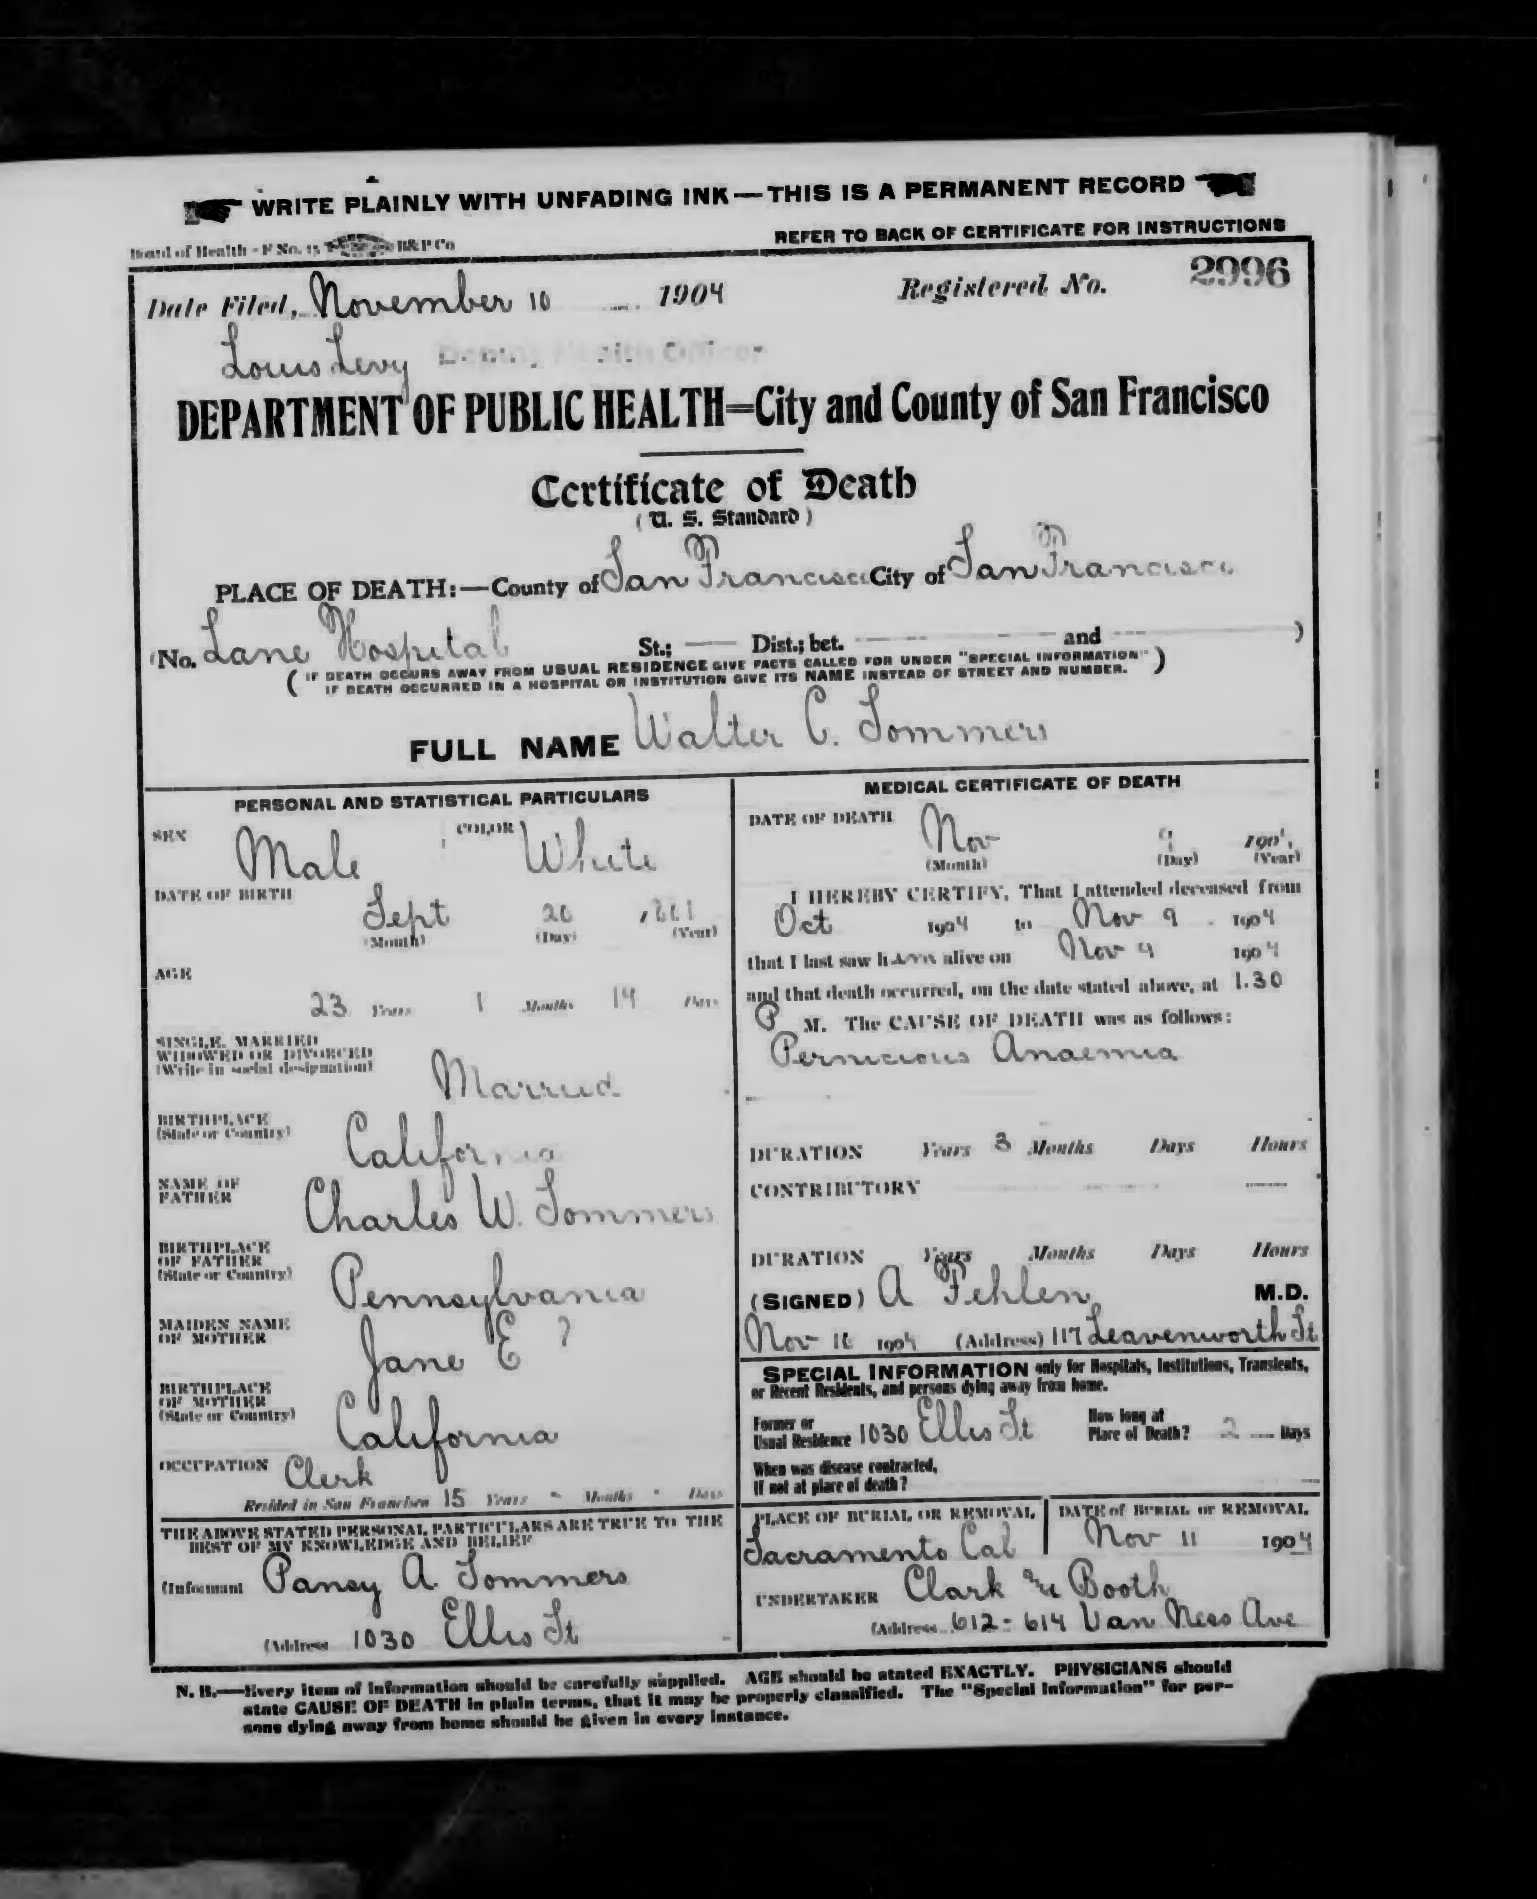 WRITE PLAINLY WITH UNFADING INK—THIS IS A PERMANENT RECORD
Board of Health - F No. 15 H&P Co
REFER TO BACK OF CERTIFICATE FOR INSTRUCTIONS
Date Filed, November 10 1904 Registered No. 2996
Louis Levy Deputy Health Officer
DEPARTMENT OF PUBLIC HEALTH=City and County of San Francisco
Certificate of Death
(U. S. Standard)
PLACE OF DEATH:—County of San Francisco City of San Francisco
(No. Lane Hospital St.; Dist.; bet. and )
(IF DEATH OCCURS AWAY FROM USUAL RESIDENCE GIVE FACTS CALLED FOR UNDER "SPECIAL INFORMATION"
IF DEATH OCCURRED IN A HOSPITAL OR INSTITUTION GIVE ITS NAME INSTEAD OF STREET AND NUMBER.)
FULL NAME Walter C. Sommers
PERSONAL AND STATISTICAL PARTICULARS
SEX Male COLOR White
DATE OF BIRTH
Sept 26
(Month) (Day) (Year)
AGE
23 Years 1 Months 14 Days
SINGLE, MARRIED
WIDOWED OR DIVORCED
(Write in social designation) Married
BIRTHPLACE
(State or Country) California
NAME OF
FATHER Charles W. Sommers
BIRTHPLACE
OF FATHER
(State or Country) Pennsylvania
MAIDEN NAME
OF MOTHER Jane E ?
BIRTHPLACE
OF MOTHER
(State or Country) California
OCCUPATION Clerk
Resided in San Francisco 15 Years - Months - Days
THE ABOVE STATED PERSONAL PARTICULARS ARE TRUE TO THE
BEST OF MY KNOWLEDGE AND BELIEF
(Informant Pansy A. Sommers
(Address 1030 Ellis St
MEDICAL CERTIFICATE OF DEATH
DATE OF DEATH Nov 9 1904
(Month) (Day) (Year)
I HEREBY CERTIFY, That I attended deceased from
Oct 1904 to Nov 9 1904
that I last saw him alive on Nov 9 1904
and that death occurred, on the date stated above, at 1.30
P M. The CAUSE OF DEATH was as follows:
Pernicious Anaemia
DURATION Years 3 Months Days Hours
CONTRIBUTORY
DURATION Years Months Days Hours
(SIGNED) A Fehlen M.D.
Nov 10 1904 (Address) 117 Leavenworth St
SPECIAL INFORMATION only for Hospitals, Institutions, Transients,
or Recent Residents, and persons dying away from home.
Former or
Usual Residence 1030 Ellis St How long at
Place of Death? 2 Days
When was disease contracted,
If not at place of death?
PLACE OF BURIAL OR REMOVAL DATE of BURIAL or REMOVAL
Sacramento Cal Nov 11 1904
UNDERTAKER Clark & Booth
(Address 612-614 Van Ness Ave
N. B.—Every item of information should be carefully supplied. AGE should be stated EXACTLY. PHYSICIANS should
state CAUSE OF DEATH in plain terms, that it may be properly classified. The "Special Information" for per-
sons dying away from home should be given in every instance.